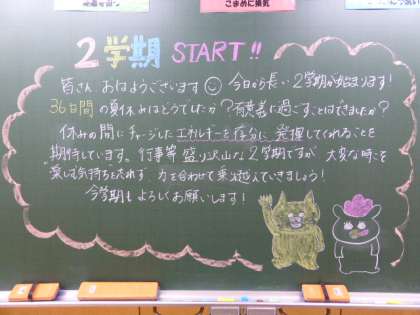 こまめに換気
2学期 START!!
皆さん おはようございます 今日から長い2学期が始まります!
36日間の夏休みはどうでしたか?有意義に過ごすことはできましたか?
休みの間にチャージしたエネルギーを存分に発揮してくれることを
期待しています。行事等盛り沢山な2学期ですが 大変な時こそ
楽しむ気持ちを忘れず 力を合わせて乗り越えていきましょう!
今学期もよろしくお願いします!